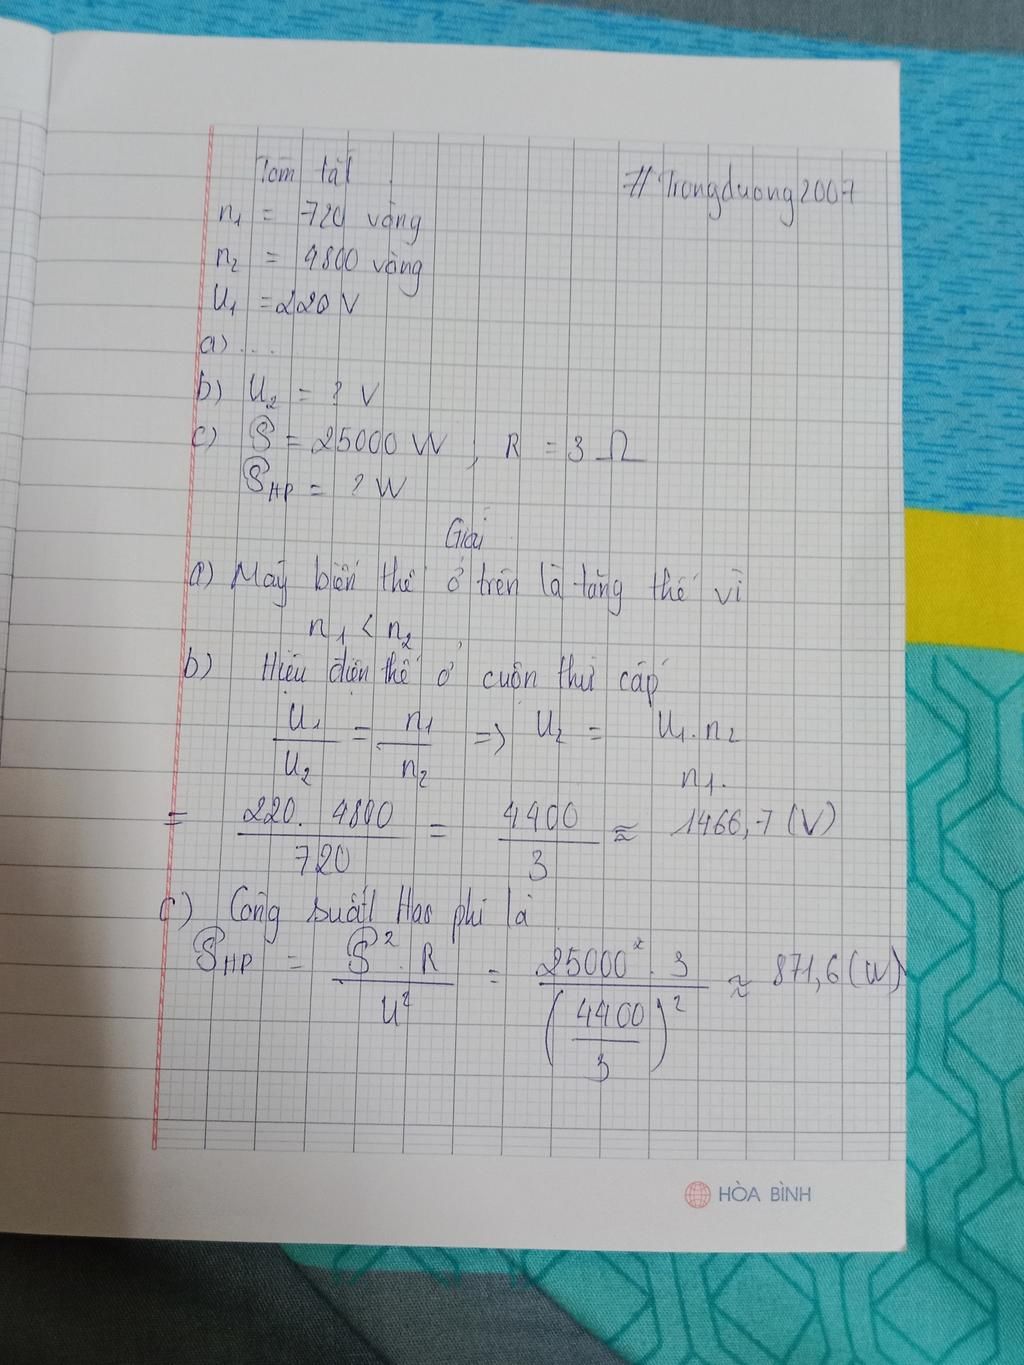 Tóm tắt
#Trongduong2007
n₁ = 720 vòng
n₂ = 4800 vòng
U₁ = 220 V
a) ...
b) U₂ = ? V
c) P = 25000 W ; R = 3 Ω
P HP = ? W
Giải
a) Máy biến thế ở trên là tăng thế vì
n₁ < n₂
b) Hiệu điện thế ở cuộn thứ cấp
U₁/U₂ = n₁/n₂ => U₂ = U₁.n₂ n₁.
= 220. 4800/720 = 4400/3 ≈ 1466,7 (V)
c) Công suất Hao phí là
P HP = P². R/U² = 25000². 3/(4400/3)² ≈ 871,6 (W)
HÒA BÌNH